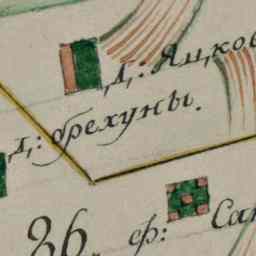 Д: Яцков
Д: брехуны.
36. ф: Сав